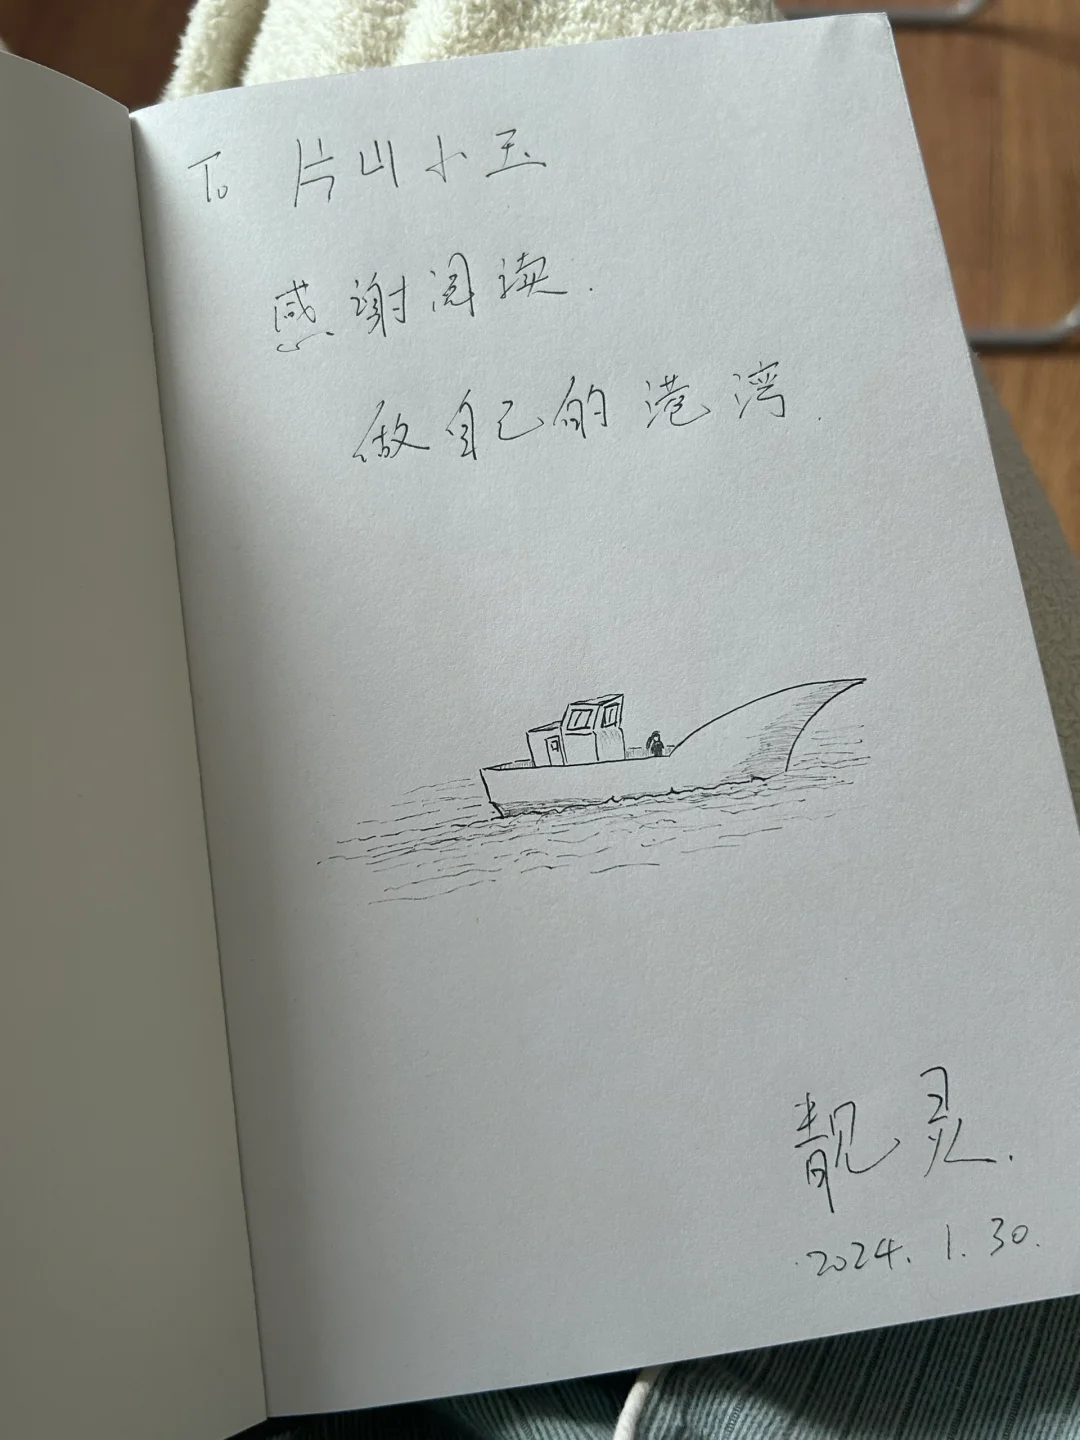 To 片山小玉
感谢阅读.
做自己的港湾.
靓灵.
2024.1.30.